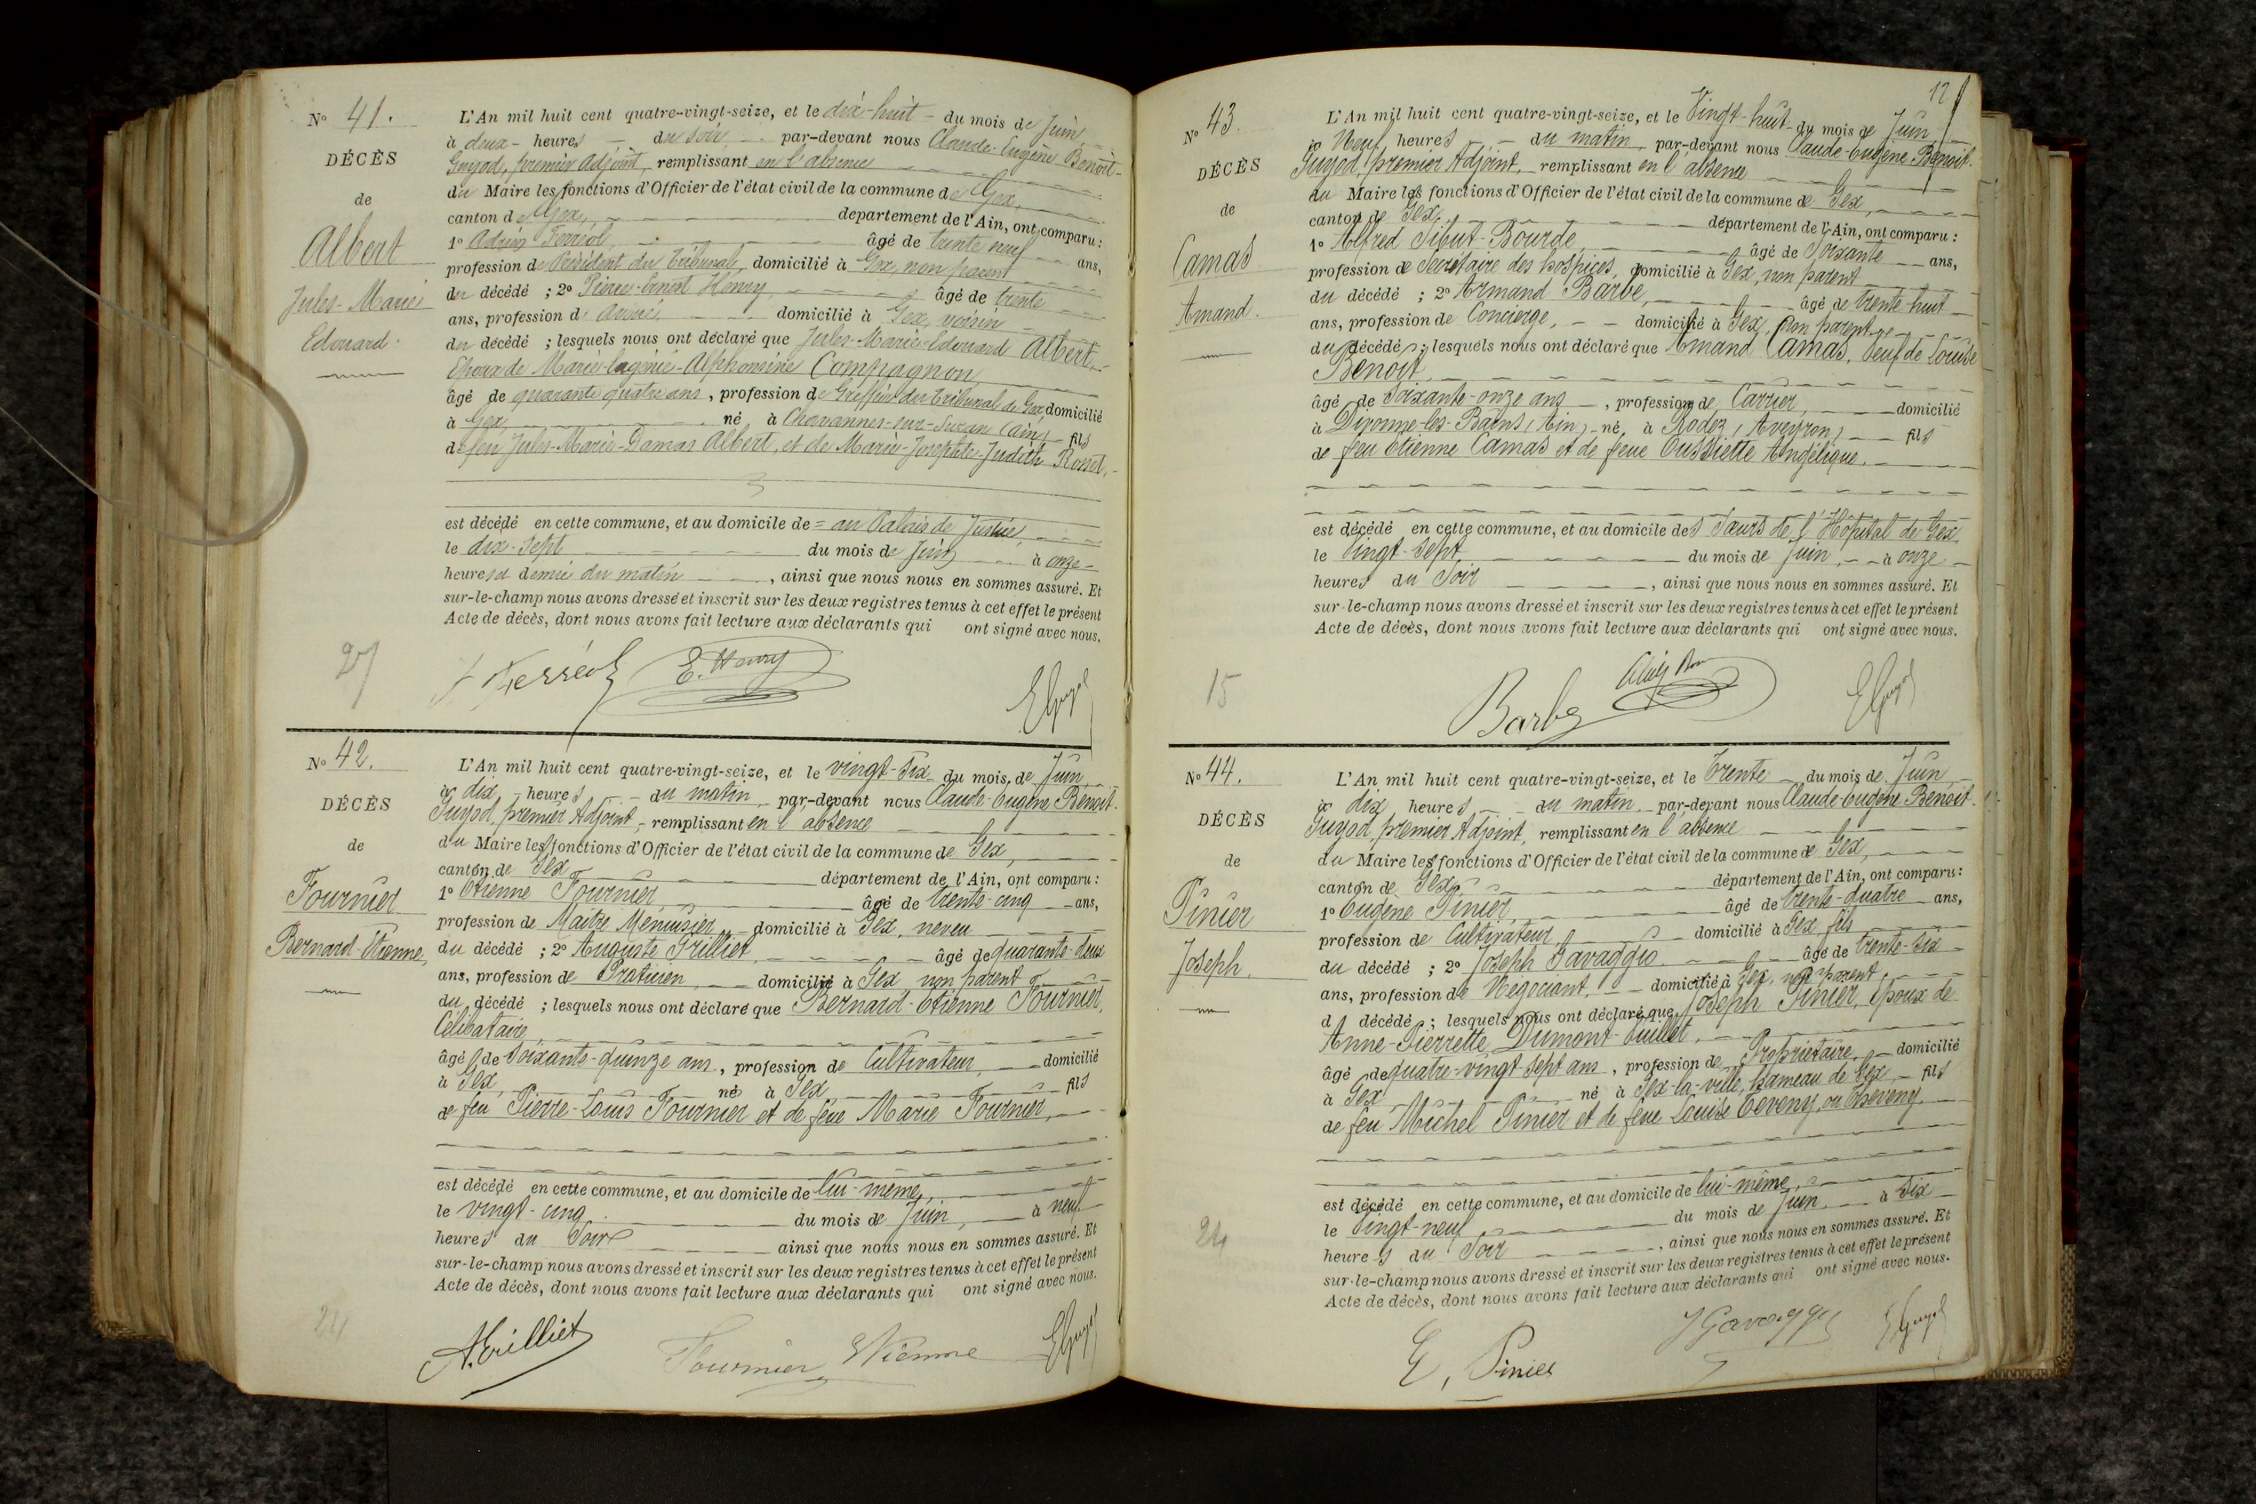 N° 41.
DÉCÈS
de
Albert
Jules-Marie
Edouard.
L'An mil huit cent quatre-vingt-seize, et le dix-huit du mois de Juin
à deux heures du soir par-devant nous Claude-Eugène Benoit-
Guyod, premier Adjoint, remplissant en l'absence
du Maire les fonctions d'Officier de l'état civil de la commune de Gex,
canton de Gex, département de l'Ain, ont comparu :
1° Adrien Ferréol, âgé de trente neuf ans,
profession de Président du Tribunal, domicilié à Gex, non parent
du décédé ; 2° Pierre-Ernest Henry, âgé de trente
ans, profession d' avoué domicilié à Gex, voisin
du décédé ; lesquels nous ont déclaré que Jules-Marie-Edouard Albert,
Epoux de Marie-Eugénie-Alphonsine Compagnon,
âgé de quarante quatre ans, profession de Greffier du Tribunal de Gex, domicilié
à Gex, né à Chavannes-sur-Suran (Ain) fils
de feu Jules-Marie-Damas Albert, et de Marie-Josephte-Judith Rosset,
est décédé en cette commune, et au domicile de = au Palais de Justice,
le dix-sept du mois de Juin à onze
heures et demie du matin, ainsi que nous nous en sommes assuré. Et
sur-le-champ nous avons dressé et inscrit sur les deux registres tenus à cet effet le présent
Acte de décès, dont nous avons fait lecture aux déclarants qui ont signé avec nous.
27
Ferréol E. Henry EGuyod
N° 42.
DÉCÈS
de
Fournier
Bernard-Etienne,
L'An mil huit cent quatre-vingt-seize, et le vingt-six du mois de Juin
à dix heures du matin par-devant nous Claude-Eugène Benoit-
Guyod, premier Adjoint, remplissant en l'absence
du Maire les fonctions d'Officier de l'état civil de la commune de Gex,
canton de Gex département de l'Ain, ont comparu :
1° Etienne Fournier âgé de trente-cinq ans,
profession de Maître Menuisier domicilié à Gex, neveu
du décédé ; 2° Auguste Trilliet, âgé de quarante-deux
ans, profession de Praticien, domicilié à Gex non parent
du décédé ; lesquels nous ont déclaré que Bernard-Etienne Fournier,
Célibataire,
âgé de soixante-quinze ans, profession de Cultivateur, domicilié
à Gex, né à Gex fils
de feu Pierre-Louis Fournier et de feue Marie Fournier,
est décédé en cette commune, et au domicile de lui-même,
le vingt-cinq du mois de Juin, à neuf
heures du Soir ainsi que nous nous en sommes assuré. Et
sur-le-champ nous avons dressé et inscrit sur les deux registres tenus à cet effet le présent
Acte de décès, dont nous avons fait lecture aux déclarants qui ont signé avec nous.
24
A. Trilliet Fournier Etienne EGuyod
12
N° 43.
DÉCÈS
de
Camas
Amand.
L'An mil huit cent quatre-vingt-seize, et le Vingt-huit du mois de Juin
à Neuf heures du matin par-devant nous Claude-Eugène Benoit-
Guyod, premier Adjoint, remplissant en l'absence
du Maire les fonctions d'Officier de l'état civil de la commune de Gex,
canton de Gex, département de l'Ain, ont comparu :
1° Alfred Sibut-Bourde, âgé de Soixante ans,
profession de Secrétaire des hospices, domicilié à Gex, non parent
du décédé ; 2° Armand Barbe, âgé de trente-huit
ans, profession de Concierge, domicilié à Gex, non parent
du décédé ; lesquels nous ont déclaré que Amand Camas, Veuf de Louise
Benoit,
âgé de Soixante-onze ans, profession de Carrier, domicilié
à Divonne-les-Bains, (Ain) né à Rodez, (Aveyron) fils
de feu Etienne Camas et de feue Oussiette Angélique.
est décédé en cette commune, et au domicile des Sœurs de l'Hôpital de Gex
le Vingt-sept du mois de Juin, à onze
heures du Soir, ainsi que nous nous en sommes assuré. Et
sur-le-champ nous avons dressé et inscrit sur les deux registres tenus à cet effet le présent
Acte de décès, dont nous avons fait lecture aux déclarants qui ont signé avec nous.
15
Barbe EGuyod
N° 44.
DÉCÈS
de
Pinier
Joseph.
L'An mil huit cent quatre-vingt-seize, et le trente du mois de Juin
à dix heures du matin par-devant nous Claude-Eugène Benoit-
Guyod, premier Adjoint, remplissant en l'absence
du Maire les fonctions d'Officier de l'état civil de la commune de Gex,
canton de Gex département de l'Ain, ont comparu :
1° Eugène Pinier, âgé de trente-quatre ans,
profession de Cultivateur domicilié à Gex, fils
du décédé ; 2° Joseph Gavaggio âgé de trente-six
ans, profession de Négociant, domicilié à Gex, non parent
d décédé ; lesquels nous ont déclaré que Joseph Pinier, Epoux de
Anne-Pierrette Dumont-Vuillet,
âgé de quatre-vingt-sept ans, profession de Propriétaire, domicilié
à Gex né à Gex-la-ville, hameau de Gex, fils
de feu Michel Pinier et de feue Louise Teveny, ou Theveny,
est décédé en cette commune, et au domicile de lui-même,
le Vingt-neuf du mois de Juin à Six
heures du Soir, ainsi que nous nous en sommes assuré. Et
sur-le-champ nous avons dressé et inscrit sur les deux registres tenus à cet effet le présent
Acte de décès, dont nous avons fait lecture aux déclarants qui ont signé avec nous.
24
E, Pinier J Gavaggio EGuyod